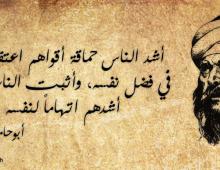 أشد الناس حماقة أقواهم اعتق
في فضل نفسه، وأثبت الناس
أشدهم اتهاماً لنفسه
أبوحا